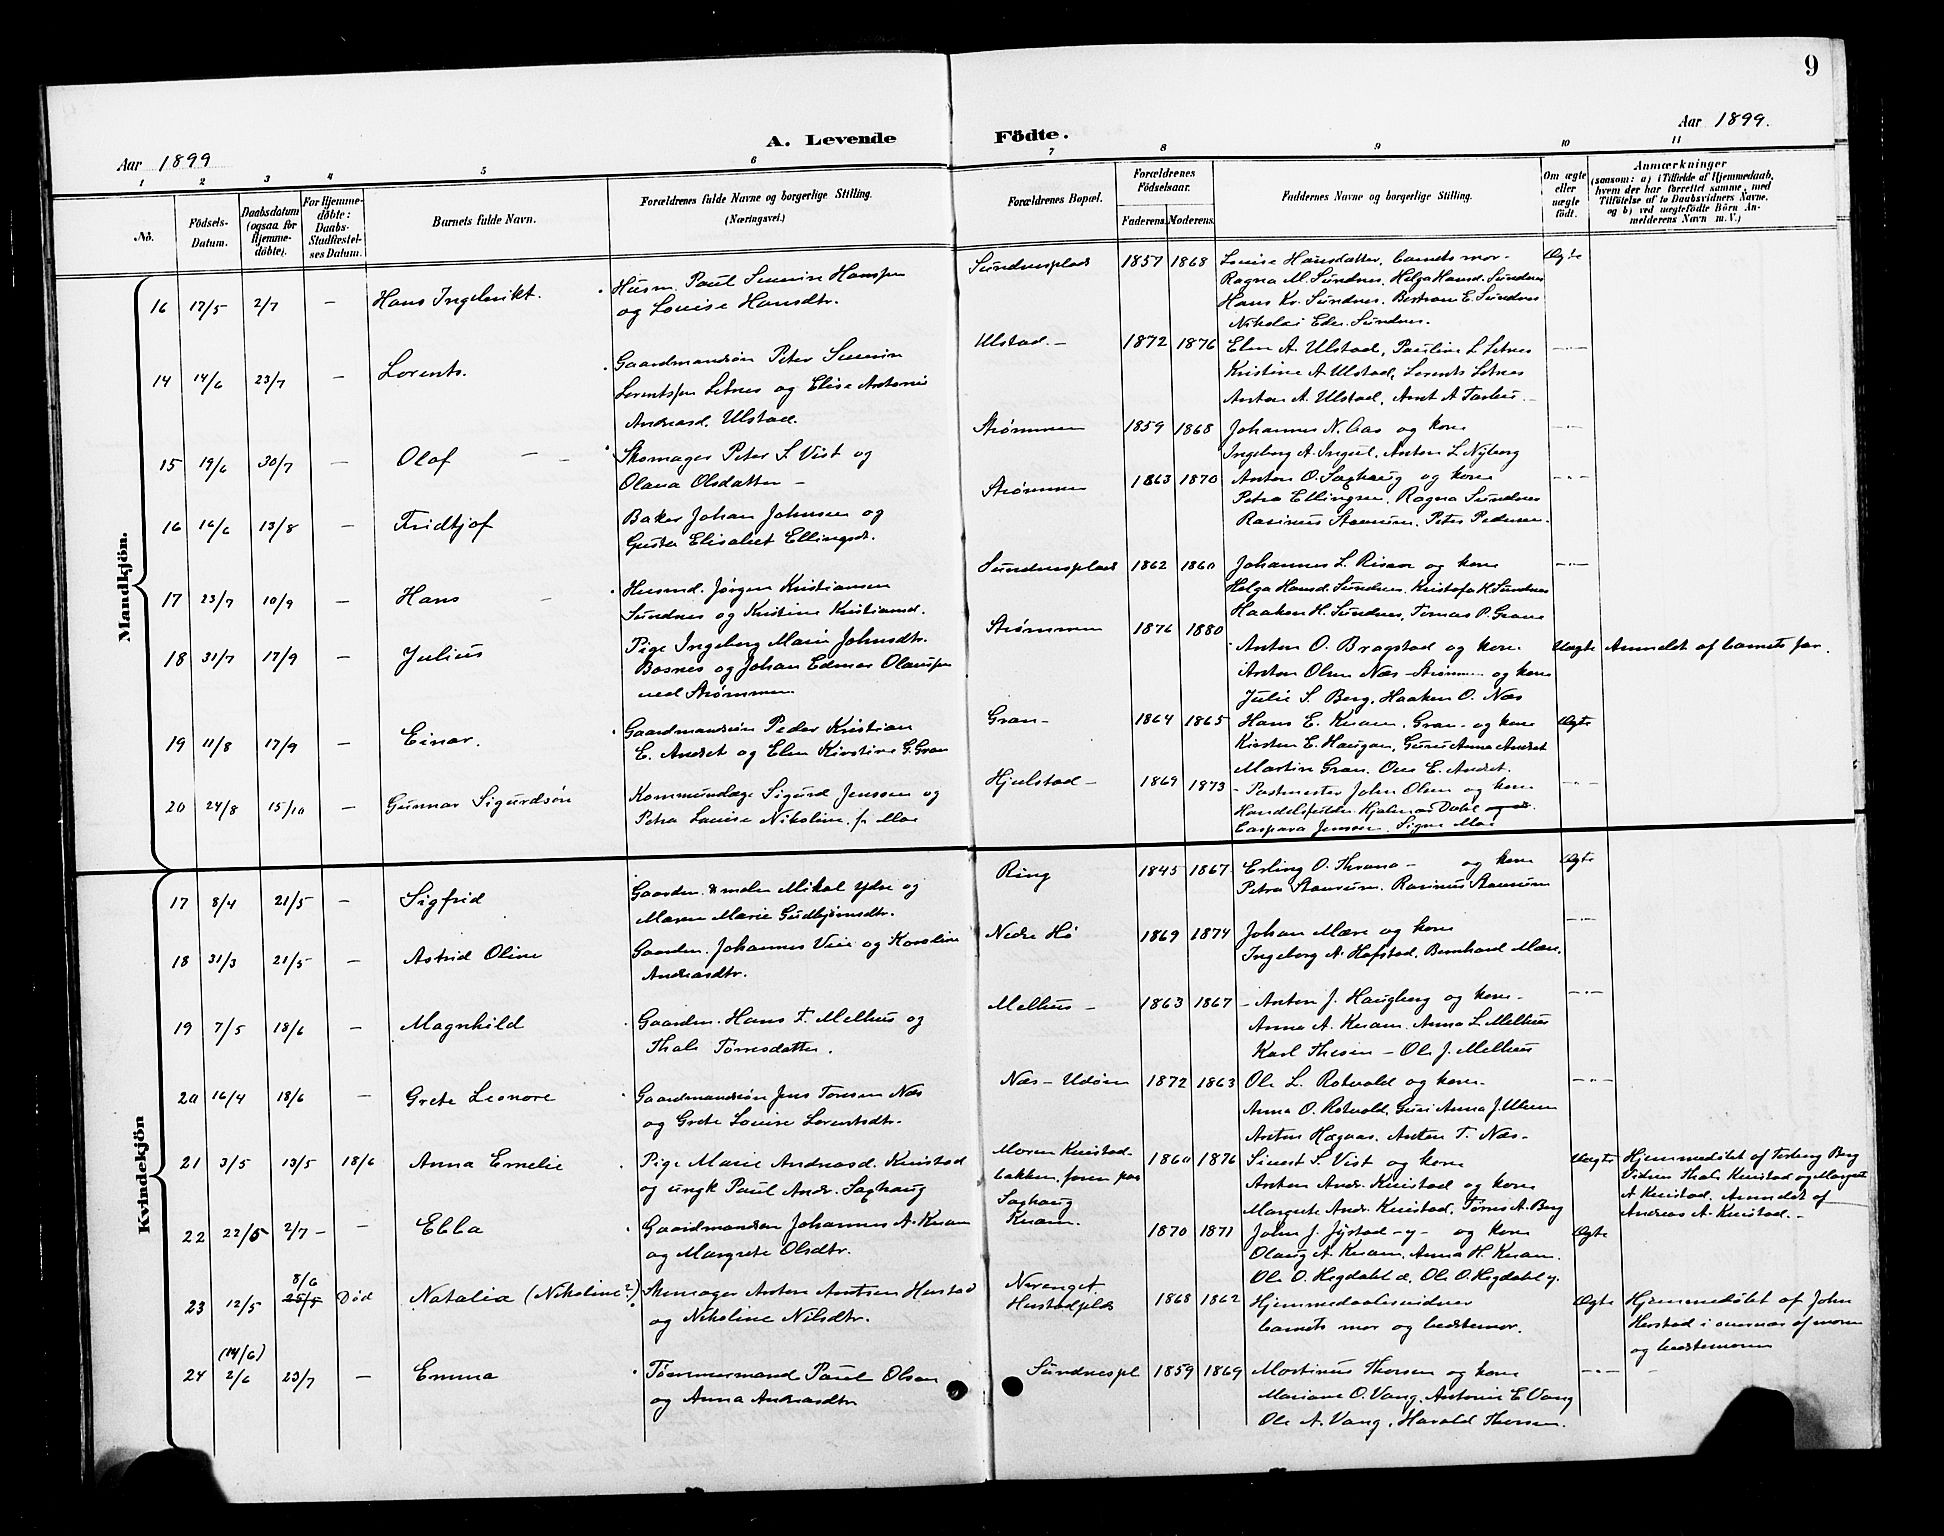 9
Aar 1899
A. Levende Födte.
Aar 1899.
1 2 3 4 5 6 7 8 9 10 11
No.
Födsels-Datum.
Daabsdatum (ogsaa for Hjemme-döbte).
For Hjemme-döbte: Daabs-Stadfæstel-ses Datum.
Barnets fulde Navn.
Forældrenes fulde Navne og borgerlige Stilling. (Næringsvei.)
Forældrenes Bopæl.
Forældrenes Födselsaar.
Faderens. Moderens.
Faddernes Navne og borgerlige Stilling.
Om ægte eller uægte födt.
Anmærkninger
(saasom: a) i Tilfælde af Hjemmedaab,
hvem der har forrettet samme, med
Tilföielse af to Daabsvidners Navne,
og b) ved uægtefödte Börn An-
melderens Navn m. V.)
Mandkjön.
16 17/5 2/7 — Hans Ingebrikt.
Husm. Paul Hanssen
og Louise Hansdtr.
Sundnesplads 1857 1868
Louise Hansdatter, barnets mor-
Ragna M. Sundnes, Helga Hansd. Sundnes
Hans Kr. Sundnes, Bertram E. Sundnes
Nikolai Edv. Sundnes.
Ægte
14 14/6 23/7 — Lorents.
Gaardmandsön Peter
Lorentssen Letnes og Elise Antonie
Andreasd. Ulstad.
Ulstad.— 1872 1876
Elen A. Ulstad, Pauline L. Letnes
Kristine A. Ulstad, Lorents Letnes
Anton A. Ulstad, Arnt A.
—„—
15 19/6 30/7 — Olaf
Skomager Peter S. Vist og
Olava Olsdatter —
Strømmen 1859 1868
Johannes N. Aas og kone
Ingeborg A. Ingul, Anton L. Nyborg
—„—
16 16/6 13/8 — Fridtjof
Baker Johan Johnsen og
Gusta Elisabet Ellingsdr.
Strømmen 1863 1870
Anton O. Saghaug og kone
Petra Ellingsen, Ragna Sundnes
Rasinus Staurum, Peter Pedersen.
—„—
17 23/7 10/9 — Hans
Husmd. Jørgen Kristiansen
Sundnes og Kristine Kristiansd.
Sundnesplads 1862 1860
Johannes L. Risan og kone
Helga Hansd. Sundnes, Kristofa H. Sundnes
Haakon H. Sundnes, Tomas P. Grane
—„—
18 31/7 17/9 — Julius
Pige Ingeborg Marie Johnsdtr.
Bosnes og Johan Edmar Olaussen
ved Strømmen
Strømmen 1876 1880
Anton O. Bragstad og kone.
Anton Olsen Næs-Strømmen og kone
Julie S. Berg, Haakon O. Næs
Uægte Anmeldt af barnets far.
19 11/8 17/9 — Einar.
Gaardmandsön Peder Kristian
E. Andret og Elen Kirstine G. Gran
Gran— 1864 1865
Hans E. Kvam, Gran- og kone
Kirsten E. Haugan, Guru Anna Andret
Martin Gran, Ove E. Andret.
Ægte
20 24/8 15/10 — Gunnar Sigurdsön
Kommunelæge Sigurd Jenssen og
Petra Louise Nikoline f. Moe
Hjulstad— 1869 1873
Postmester John Olsen og kone
Hjalmar Dahl
Caspara Jenssen, Signe Moe
—„—
Kvindekjön
17 8/4 21/5 — Sigfrid
Gaardm. & maler Mikal Ydse og
Maren Marie Gudbjørnsdtr.
Ring 1845 1867
Erling O. Thrana— og kone
Petra Staurum, Rasinus Staurum
Ægte
18 31/3 21/5 — Astrid Oline
Gaardm. Johannes Veie og
Andreasdtr.
Nedre Hø 1869 1874
Johan Mære og kone
Ingeborg A. Hofstad, Bernhard Mære.
—„—
19 7/5 18/6 — Magnhild
Gaardm. Hans T. Melhus og
Thale Tørresdatter.
Melhus— 1863 1867
Anton J. Haugberg og kone—
Anna A. Kvam, Anna L. Melhus
Karl Thesen — Ole J. Melhus
—„—
20 16/4 18/6 — Grete Leonore
Gaardmandsön Jens Tønesen Næs
og Grete Louise Lorentsdtr.
Næs—Udøen 1872 1863
Ole L. Rotvold og kone—
Anna O. Rotvold, Guri Anna J.
Anton Hagaas, Anton T. Næs—
—„—
21 3/5 13/5 18/6 Anna Emelie
Pige Marie Andreasd. Kvistad
og ungk Paul Andr. Saghaug
Moren Kvistad-
bakken, faren paa
Saghaug
1860 1876
Sivert S. Vist og kone
Anton Andr. Kvistad og kone
Margrete Andr. Kvistad, Tørres A. Berg
Uægte Hjemmedöbt af Berg
Vidner Thale Kvistad og Margrete
A. Kvistad. Anmeldt af
Andreas A. Kvistad.—
22 22/5 2/7 — — Ebba
Gaardmandsön Johannes A. Kvam
og Margrete Olsdtr.
Kvam. 1870 1871
John J. Jystad—y— og kone
Olaug A. Kvam, Anna H. Kvam.
Ole O. Hegdahl æ, Ole O. Hegdahl y.
Ægte
23 12/5 8/6 25/5 Död Natalia (Nikoline?)
Skomager Anton Arntsen Herstad
og Nikoline Nilsdtr.
Herstadfjeld 1868 1862
Hjemmedaabsvidner
barnets mor og bedstemor.
Ægte Hjemmedöbt af John
Herstad i overvær af moren
og bedstemoren
24 (14/6) 2/6 23/7 — Emma
Tømmermand Paul Olsen
og Anna Andreasdtr
Sundnespl 1859 1869
Martinus Thorsen og kone
Mariane O. Vang, Antonie E. Vang
Ole A. Vang, Harald Thorsen.
—„—